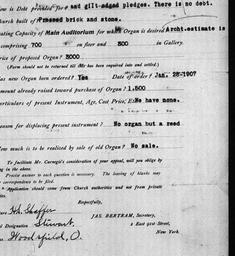 How is Debt provided for? and gilt-edged pledges. There is no debt.
Church built of Pressed brick and stone.
Seating Capacity of Main Auditorium for which Organ is desired Archt-estimate is
comprising 700 on floor and 300 in Gallery.
Price of proposed Organ? 3000
(Form should not to returned till
Has new Organ been ordered? Yes Date of order? Jan. 28-1907
Amount already raised toward purchase of Organ? 1,500
Particulars of present Instrument, Age, Cost Price, We have none.
Reason for displacing present instrument? No organ but a reed
How much is to be realized by sale of old Organ? No sale.
To facilitate Mr. Carnegie's consideration of your appeal, will you oblige by filling
in the above.
Precise answer to each question is necessary. The leaving of blanks may
correspondence to be filed.
Application should come from Church authorities and not from private
parties.
Respectfully,
JAS. BERTRAM, Secretary,
2 East 91st Street,
New York.
H. Sheffer
Designation Stewart.
Woodsfield, O.